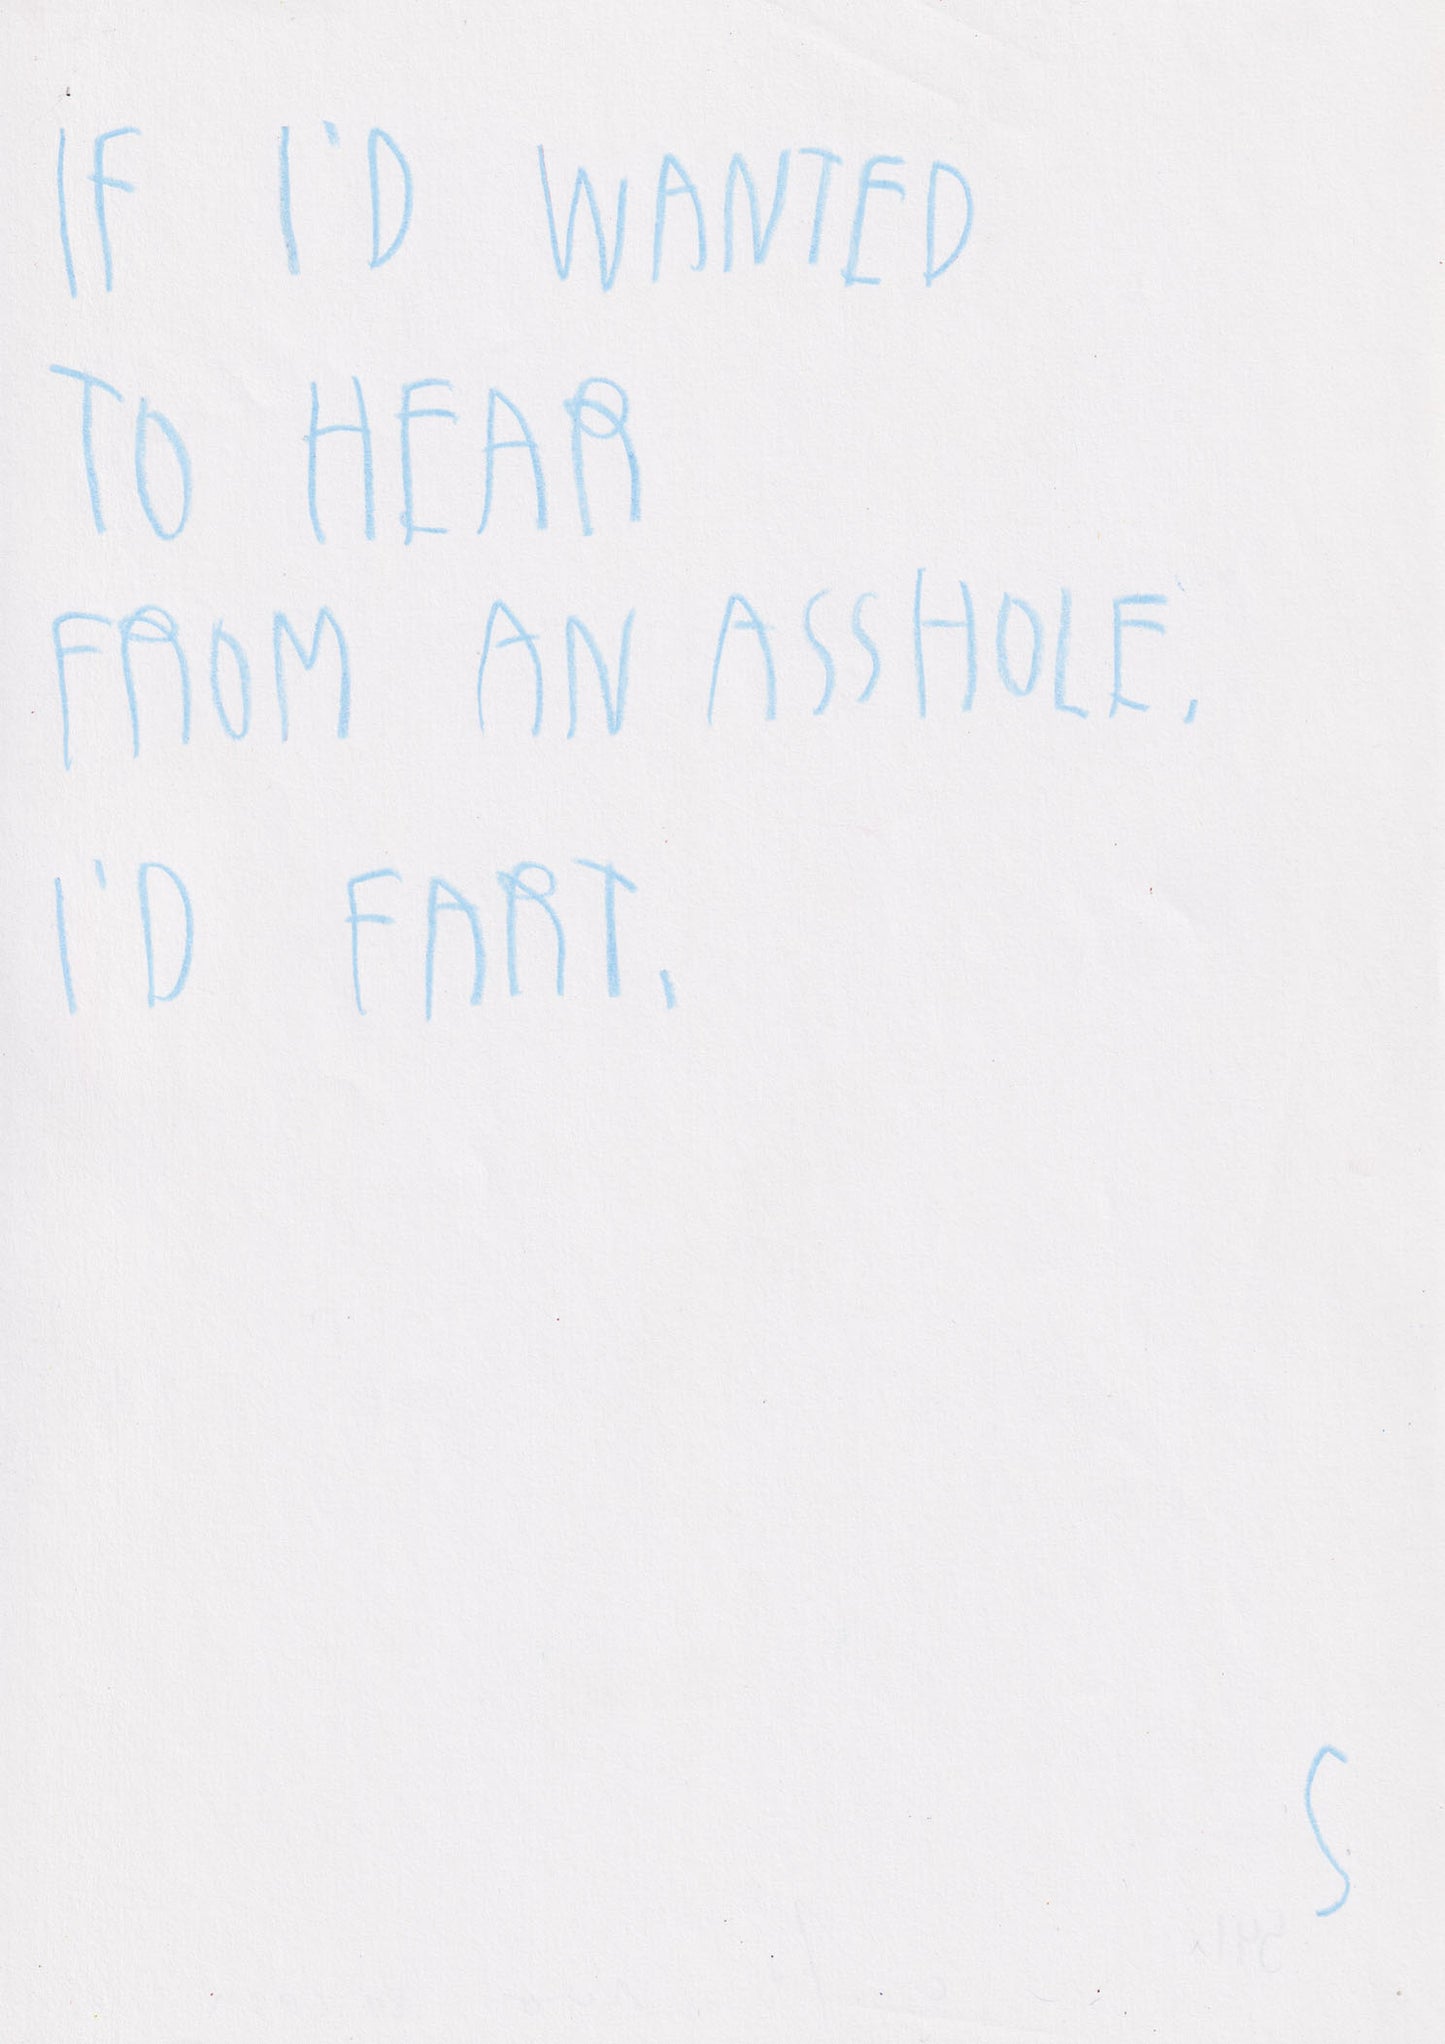 IF I'D WANTED
TO HEAR
FROM AN ASSHOLE,
I'D FART.
S